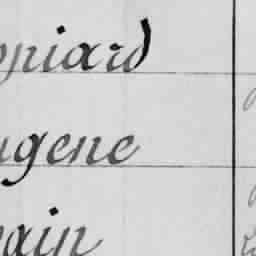 opiard
ugene
vain